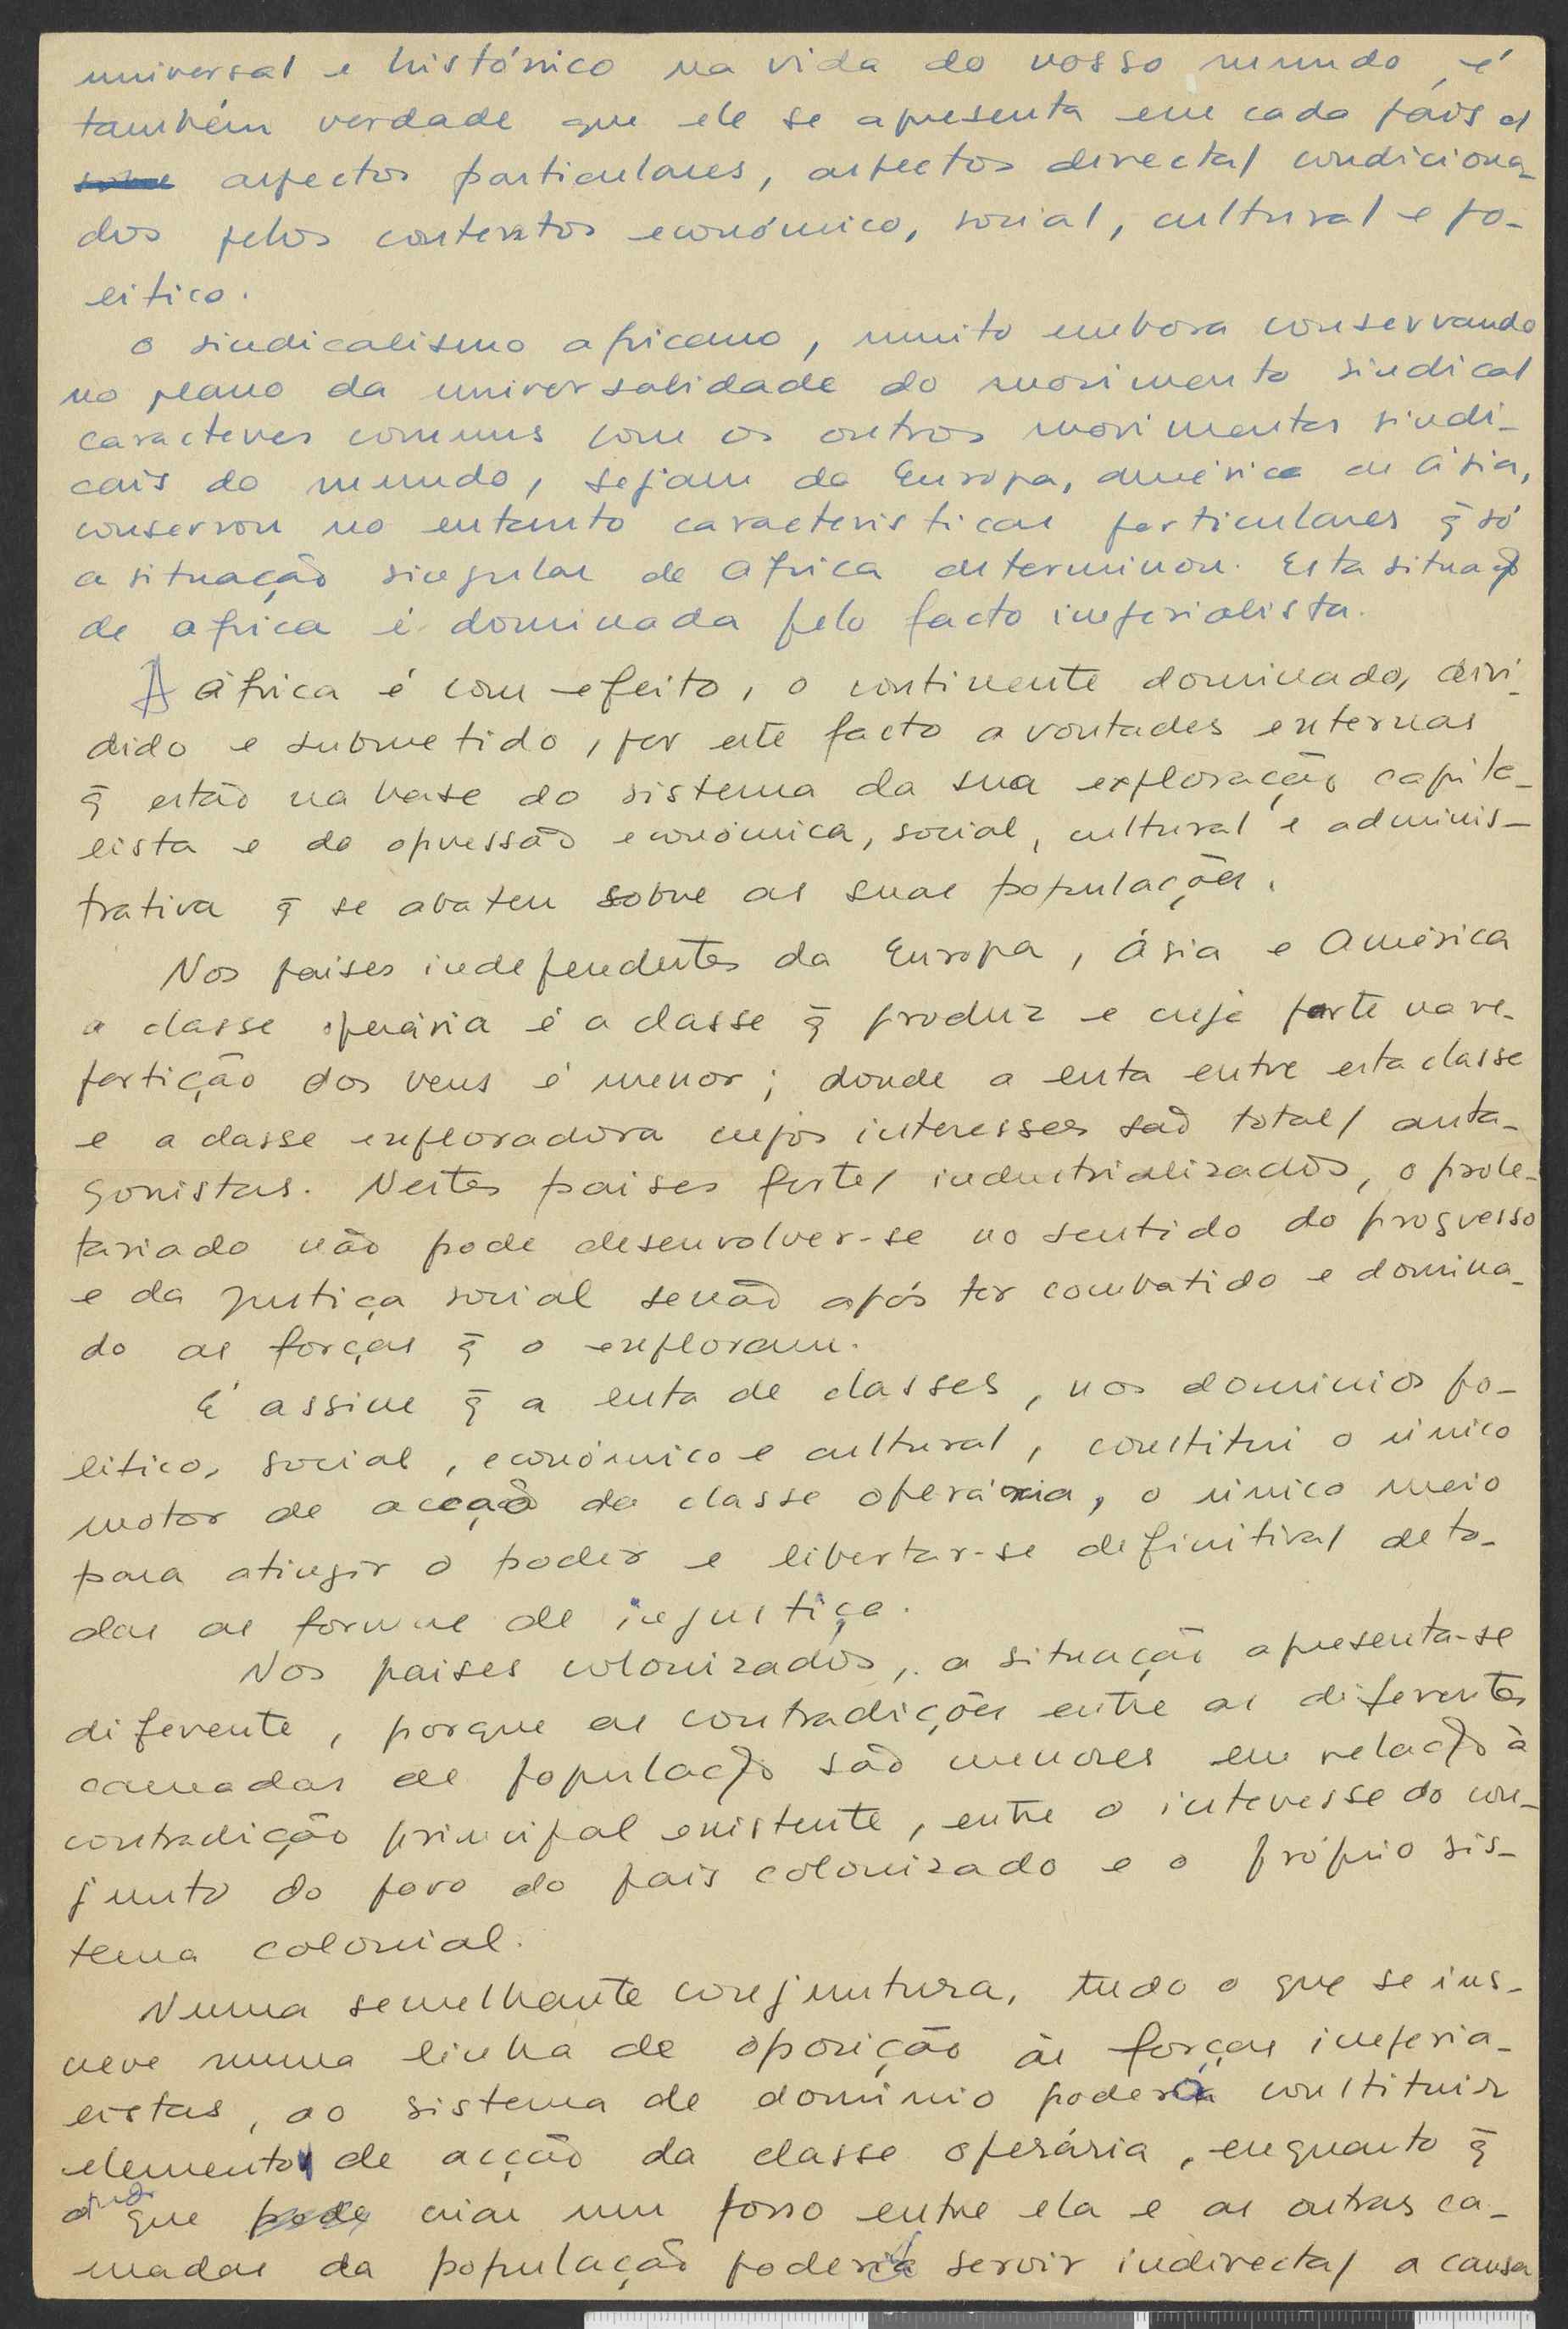 universal e histórico na vida do nosso mundo, é
também verdade que ele se apresenta em cada páis c/
sobre aspectos particulares, aspectos directa/ condiciona-
dos pelos contextos económico, social, cultural e po-
lítico.
O sindicalismo africano, muito embora conservando
no plano da universalidade do movimento sindical
caracteres comuns com os outros movimentos sindi-
cais do mundo, sejam da Europa, América ou Ásia,
conservou no entanto caracteristicas particulares q̃ só
a situação singular de Africa determinou. Esta situação
de africa é dominada pelo facto imperialista.
A África é com efeito, o continente dominado, divi-
dido e submetido, por este facto a vontades externas
q̃ estão na base do sistema da sua exploração capita-
lista e da opressão económica, social, cultural e adminis-
trativa q̃ se abateu sobre as suas populações.
Nos paises independentes da Europa, Ásia e América
a classe operária é a classe q̃ produz e cuja parte na re-
partição dos bens é menor; donde a luta entre esta classe
e a classe exploradora cujos interesses são total/ anta-
gonistas. Nestes paises forte/ industrializados, o prole-
tariado não pode desenvolver-se no sentido do progresso
e da justiça social senão após ter combatido e domina-
do as forças q̃ o exploram.
É assim q̃ a luta de classes, nos dominios po-
litico, social, económico e cultural, constitui o único
motor de acção da classe operária, o único meio
para atingir o poder e libertar-se definitiva/ de to-
das as formas de injustiça.
Nos paises colonizados, a situação apresenta-se
diferente, porque as contradições entre as diferentes
camadas de população são menores em relação à
contradição principal existente, entre o interesse do con-
junto do povo do pais colonizado e o próprio sis-
tema colonial.
Numa semelhante conjuntura, tudo o que se ins-
neve numa linha de oposição às forças imperia-
listas, ao sistema de dominio poderá constituir
elemento de acção da classe operária, enquanto q̃
tudo
o que pode criar um fosso entre ela e as outras ca-
madas da população poderia servir indirecta/ a causa